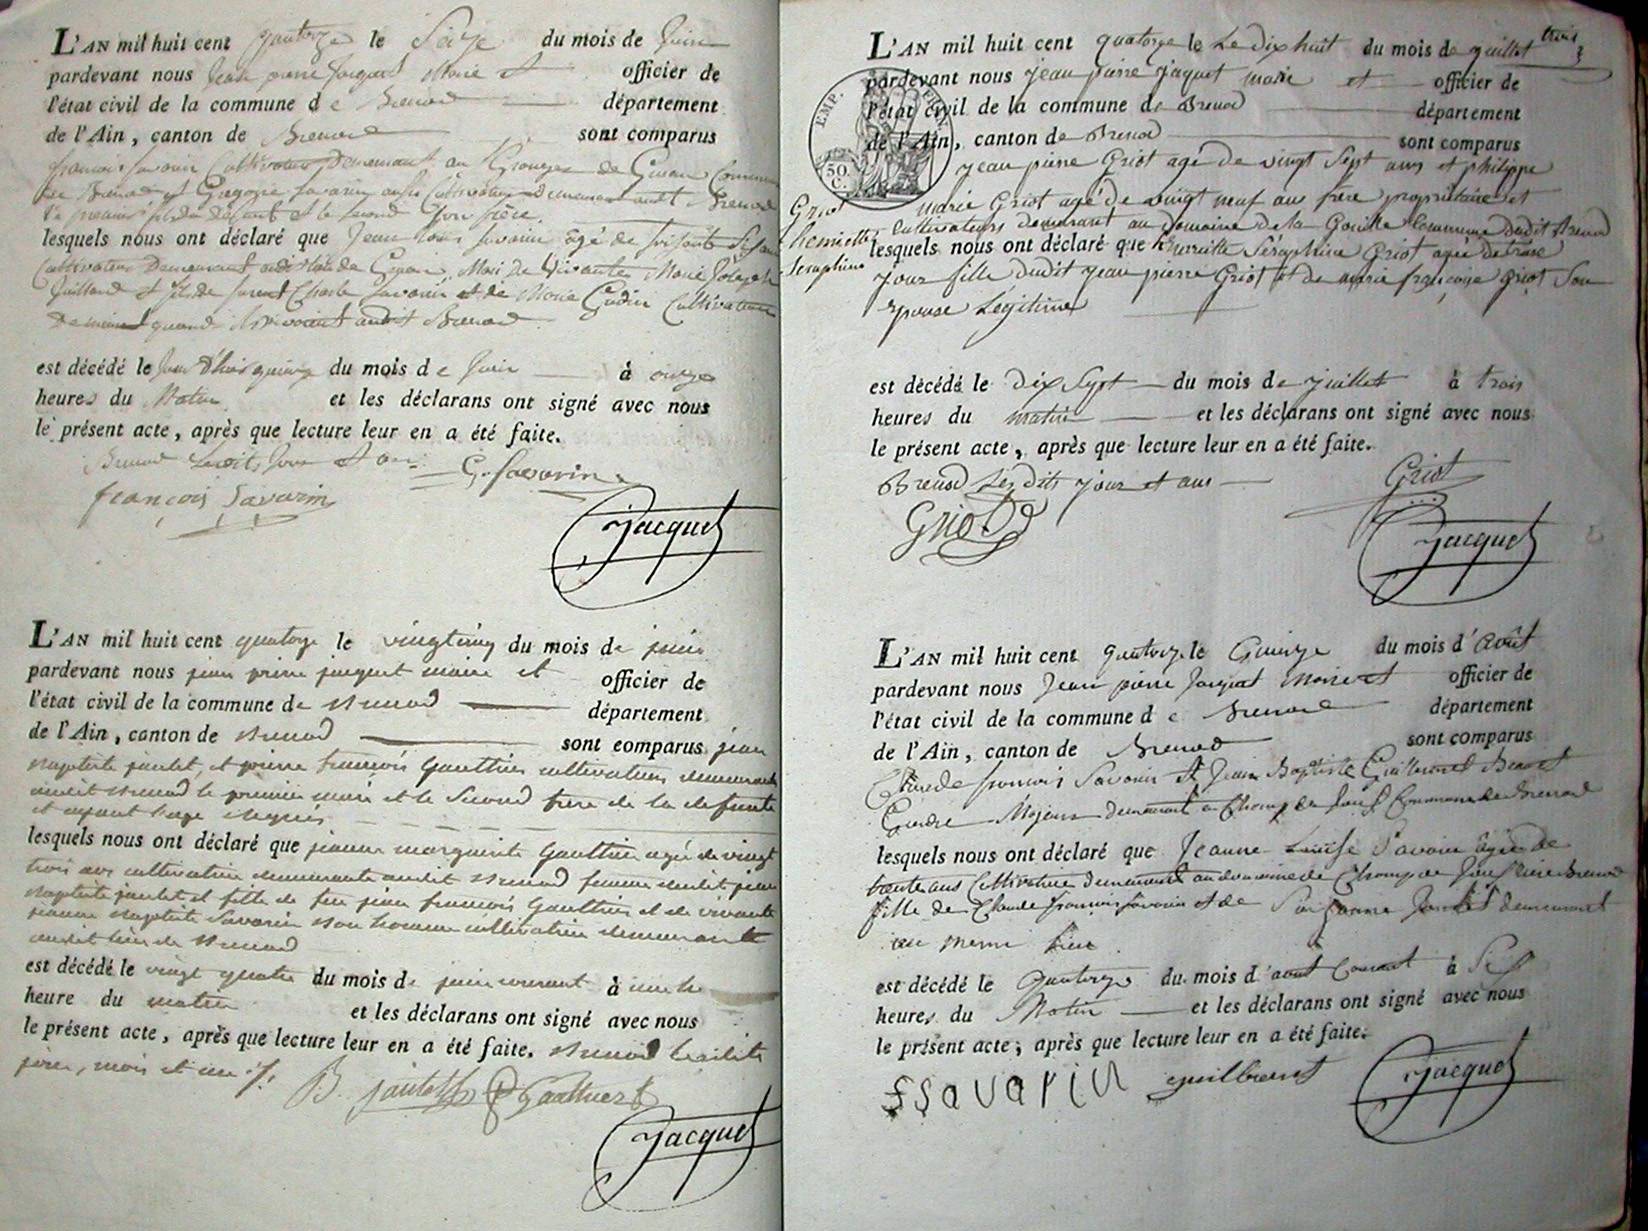 L'AN mil huit cent quatorze le Seize du mois de Juin
pardevant nous Jean pierre Jacquet Maire et officier de
l'état civil de la commune de Brenod département
de l'Ain, canton de Brenod sont comparus
françois Savarin Cultivateur Demeurant au Granges de Commune
de Brenod et Gregoire Savarin aussi Cultivateur demeurant a Brenod
le premier fils du Défunt et le second Son frère.
lesquels nous ont déclaré que Jean Louis Savarin âgé de Soixante
Cultivateur Demeurant Mari De Vivante Marie Josephte
Juillard et fils de Charle Savarin et de Marie Cultivateurs
quand ils vivoient audit Brenod
est décédé le Jour d'hier quinze du mois de Juin à onze
heures du Matin et les déclarans ont signé avec nous
le présent acte, après que lecture leur en a été faite.
Brenod Lesdits Jour et an. G. Savarin
françois Savarin
Jacquet
L'AN mil huit cent quatorze le vingt cinq du mois de juin
pardevant nous jean pierre jacquet maire et officier de
l'état civil de la commune de Brenod département
de l'Ain, canton de Brenod sont comparus jean
baptiste jantet, et pierre françois Gauthier cultivateurs demeurants
audit Brenod le premier mari et le Second frere de la defunte
et ayant l'age requis
lesquels nous ont déclaré que jeanne marguerite Gauthier agée de vingt
trois ans cultivatrice demeurante audit Brenod femme dudit jean
baptiste jantet et fille de feu jean françois Gauthier et de vivante
jeanne baptiste Savarin cultivatrice demeurante
audit lieu de Brenod
est décédé le vingt quatre du mois de juin courant à une h
heure du matin et les déclarans ont signé avec nous
le présent acte, après que lecture leur en a été faite. Brenod lesdits
jour, mois et an
B jantet P Gauthier
Jacquet
EMP. FRAN.
50 C.
L'AN mil huit cent quatorze le Le dix huit du mois de juillet
pardevant nous jean pierre jaquet maire et officier de
l'état civil de la commune de Brenod département
de l'Ain, canton de Brenod sont comparus
jean pierre Griot agé de vingt Sept ans et philippe
marie Griot agé de vingt neuf ans frère propriétaires et
Cultivateurs demeurant au domaine de la Gouille Commune dudit Brenod
Griot
henriette
Seraphine
lesquels nous ont déclaré que henriette Séraphine Griot agée de trois
jour fille dudit jean pierre Griot et de marie françoise Griot Son
epouse Légitime
est décédé le dix Sept du mois de juillet à trois
heures du matin et les déclarans ont signé avec nous
le présent acte, après que lecture leur en a été faite.
Brenod Les dits jour et ans Griot
Griot
Jacquet
L'AN mil huit cent quatorze le Quinze du mois d'Août
pardevant nous Jean pierre Jacquet Maire et officier de
l'état civil de la commune de Brenod département
de l'Ain, canton de Brenod sont comparus
Claude françois Savarin et Jean Baptiste Guillermet
Gendre Majeurs demeurant a Champ de Commune de Brenod
lesquels nous ont déclaré que Jeanne Louise Savarin âgée de
trente ans Cultivatrice Demeurant au domaine de Champ de Brenod
fille de Claude françois Savarin et de Suzanne Jantet demeurant
au meme lieu
est décédé le quatorze du mois d'août Courant à Six
heures du Matin et les déclarans ont signé avec nous
le présent acte, après que lecture leur en a été faite.
F Savarin guillermet
Jacquet